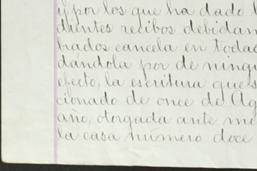 y por los que ha dado l
dientes recibos debidam
trados cancela en todas
dandola por de ningu
efecto, la escritura que s
cionado de once de Ag
año, otorgada ante mi
la casa número doce